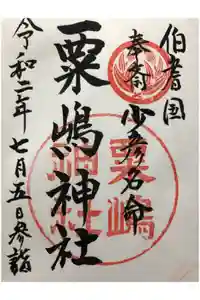 伯耆国
奉斎 少彦名命
粟嶋神社
令和二年七月五日参詣
粟嶋神社